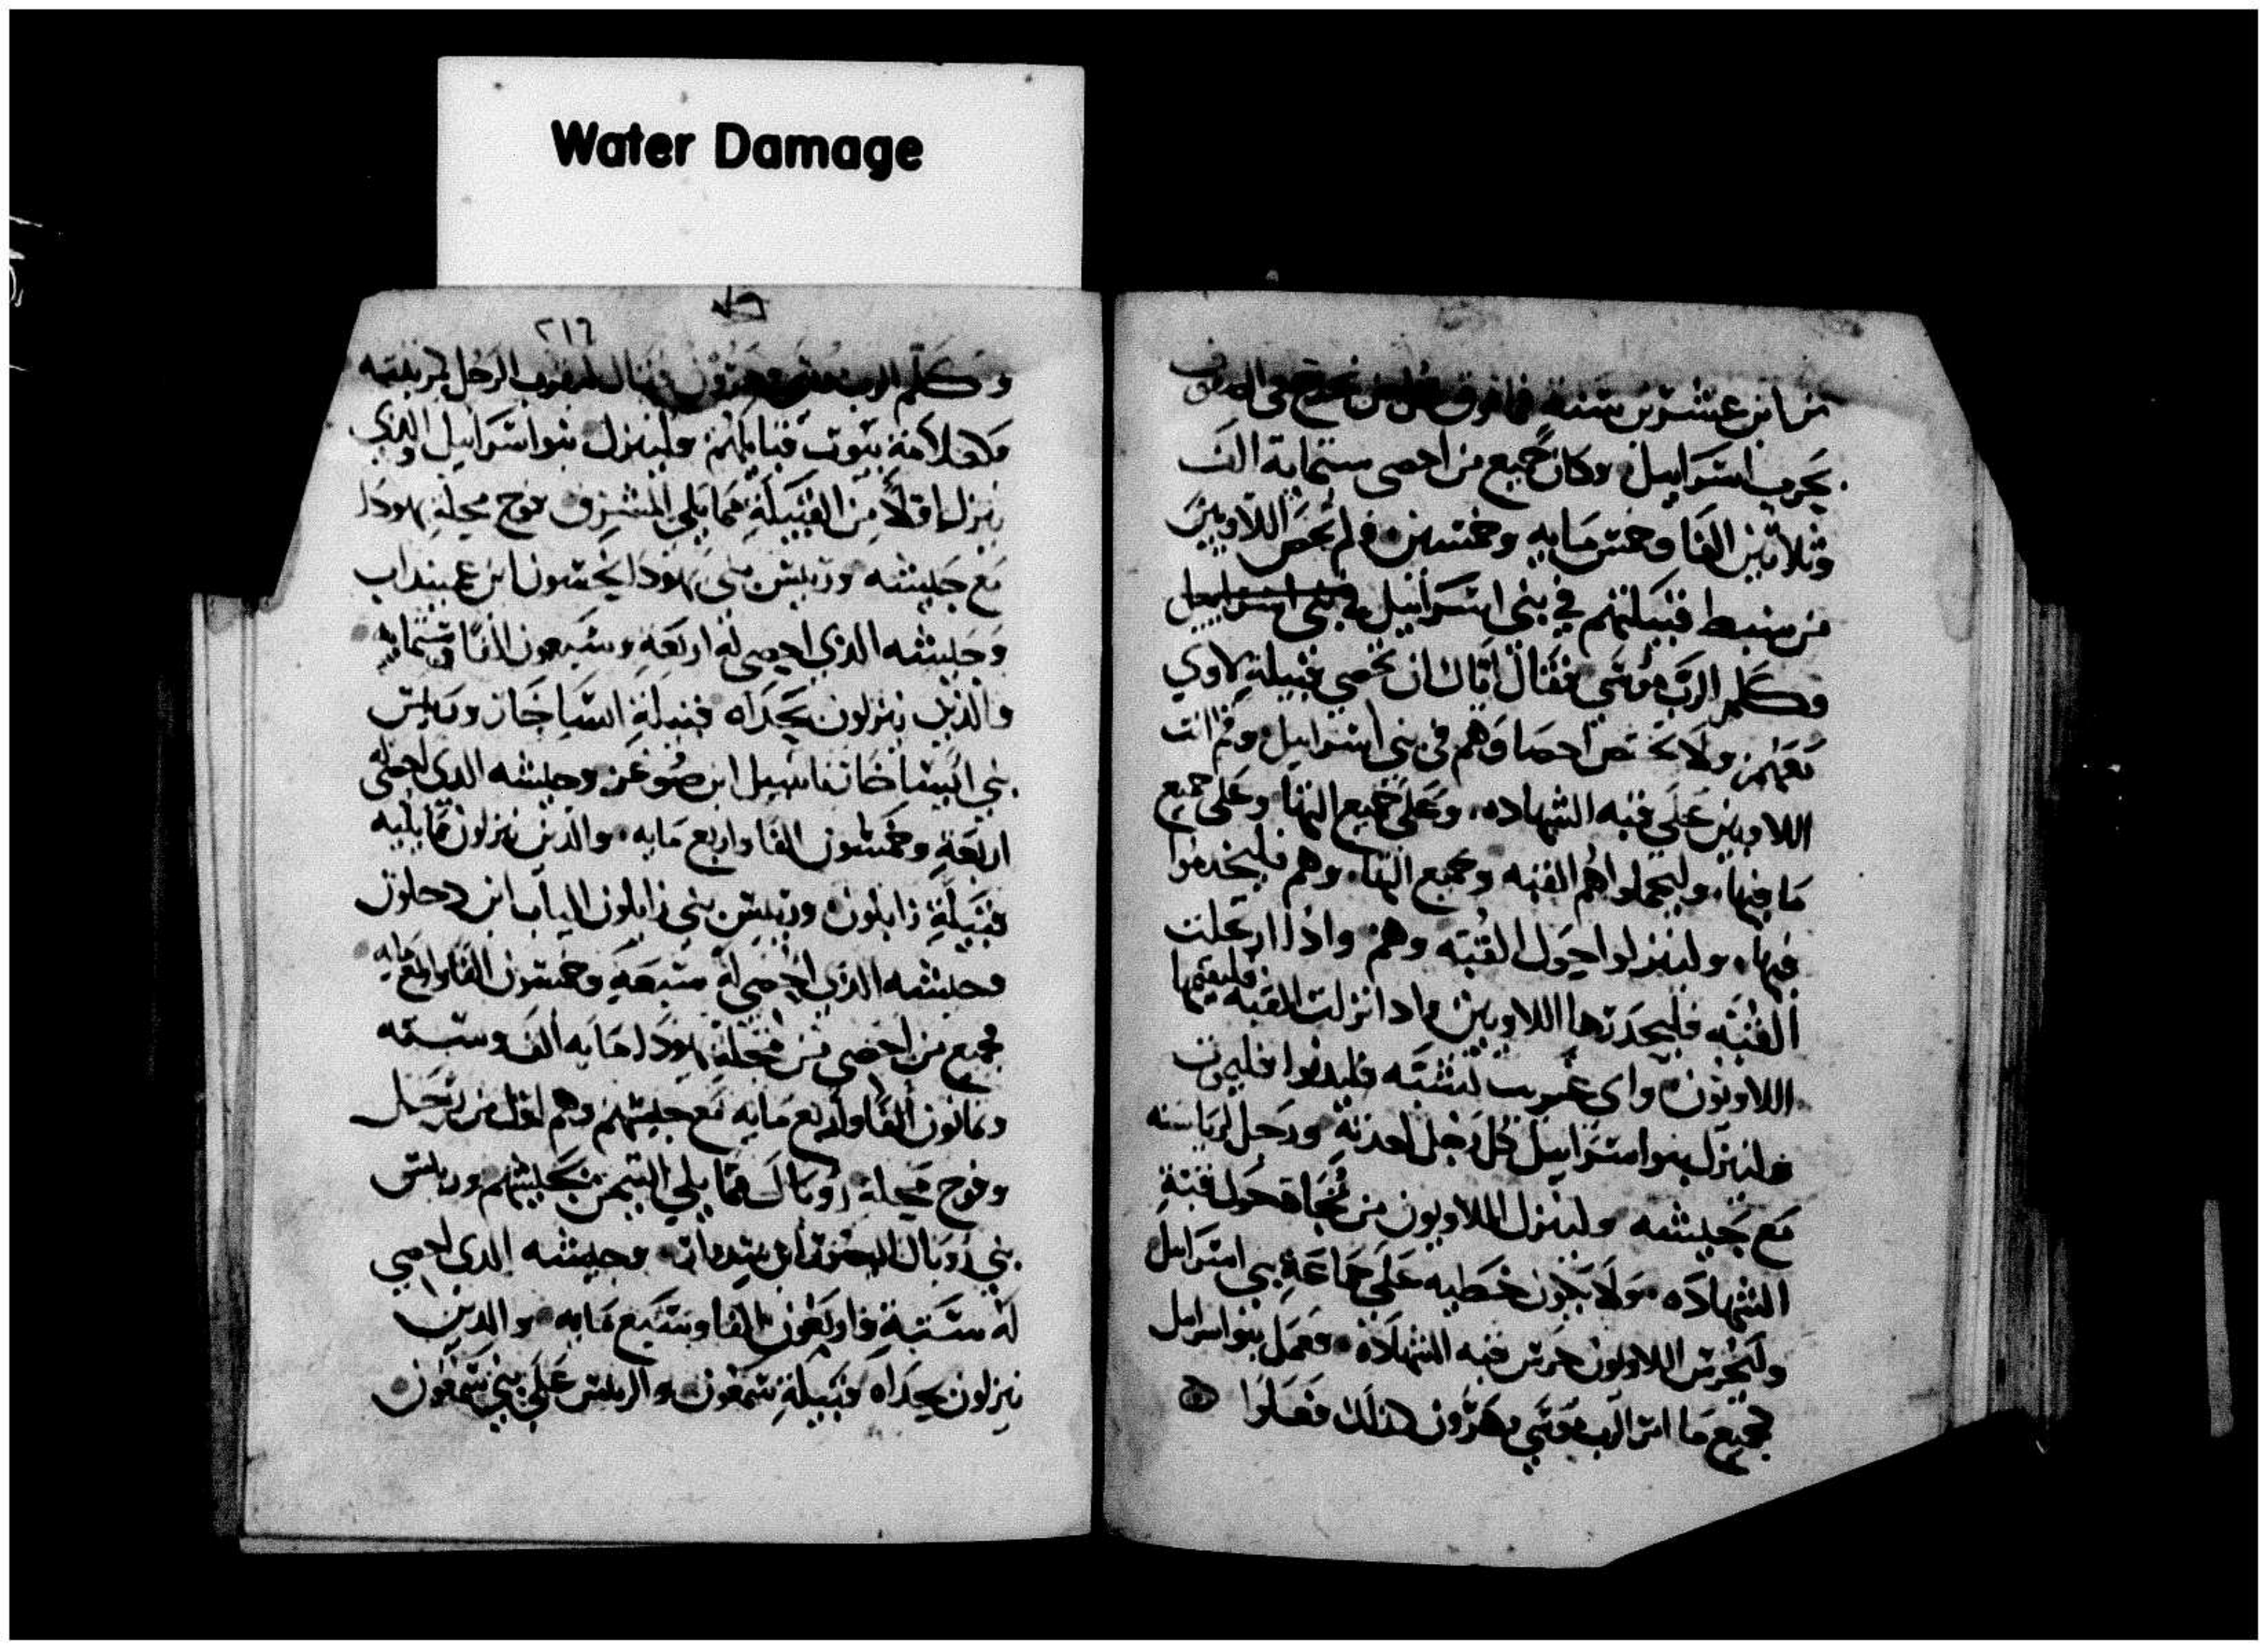 Water Damage
من ابن عشرين سنة فما فوق كل من يخرج في الصفوف
يحرب اسرايبل وكان جميع من احصى ستماية الف
وثلاثين الفا وخمس مايه وخمسين فلم يحص اللاويين
من سبط قبيلتهم في بني اسرائيل في بني اسراييل
وكلم الرب موسى فقال اياك ان تحصي قبيلة لاوي
معهم ولا تحص احصاوهم في بني اسراييل وقم انت
اللاويين على قبه الشهاده وعلى جميع انيتها وعلى جميع
ما فيها وليحملوا هم القبه وجميع انيتها وهم فليخدموا
فيها ولينزلوا حول القبه وهم واذا ارتحلت
القبه فليحدرها اللاويين واذا نزلت القبه فليقيمها
اللاويون واي غريب لمسته فليدنوا فليموت
ولينزل بنوا اسراييل كل رجل لعدته ورجل لرياسته
مع جيشه ولينزل اللاويون من تجاه حول قبة
الشهاده ولا يكون خطيه على جماعة بني اسراييل
وليحرس اللاويون حرس قبه الشهاده فعمل بنوا اسراييل
جميع ما امر الرب موسى وهرون كذلك فعلوا
٢١٦
وكلم الرب موسى وهرون فقال ليقرب الرجل
علامة بيوت قبايلهم ولينزل بنوا اسراييل والذي
ينزل اولا من القبيلة مما يلي المشرق فوج محلة يهودا
مع جيشه وريس بني يهودا نحشون ابن عميناداب
وجيشه الذي احصي له اربعة وسبعون الفا وستمايه
والذين ينزلون بحداه قبيلة اساخار وريس
بني ايساخار نثانييل ابن صوغر وجيشه الذي احصي له
اربعة وخمسون الفا واربع مايه والذين ينزلون مما يليه
قبيلة زابلون وريس بني زابلون الياب ابن حلون
وجيشه الذي احصي له سبعة وخمسون الفا واربع مايه
جميع من احصي من محلة يهودا مايه الف وسته
وثمانون الفا واربع مايه مع جيشهم وهم اول من يرحل
وفوج محلة روبال مما يلي التيمن بجيشهم وريس
بني روبال اليصور ابن سديار وجيشه الذي احصي
له ستة واربعون الفا وسبع مايه والذين
ينزلون بحداه قبيلة شمعون والريس على بني شمعون